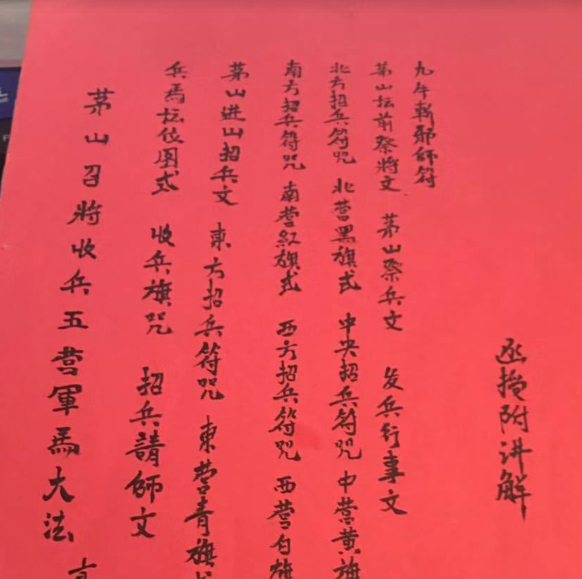 茅山召將收兵五营軍馬大法
兵馬坛位圖式 收兵旗咒 招兵請師文
茅山进山招兵文 東方招兵符咒 東营青旗
南方招兵符咒 南营紅旗式 西方招兵符咒 西营白旗
北方招兵符咒 北营黑旗式 中央招兵符咒 中营黄旗
茅山坛前祭將文 茅山祭兵文 发兵行事文
九牛斬邪師符
函授附讲解